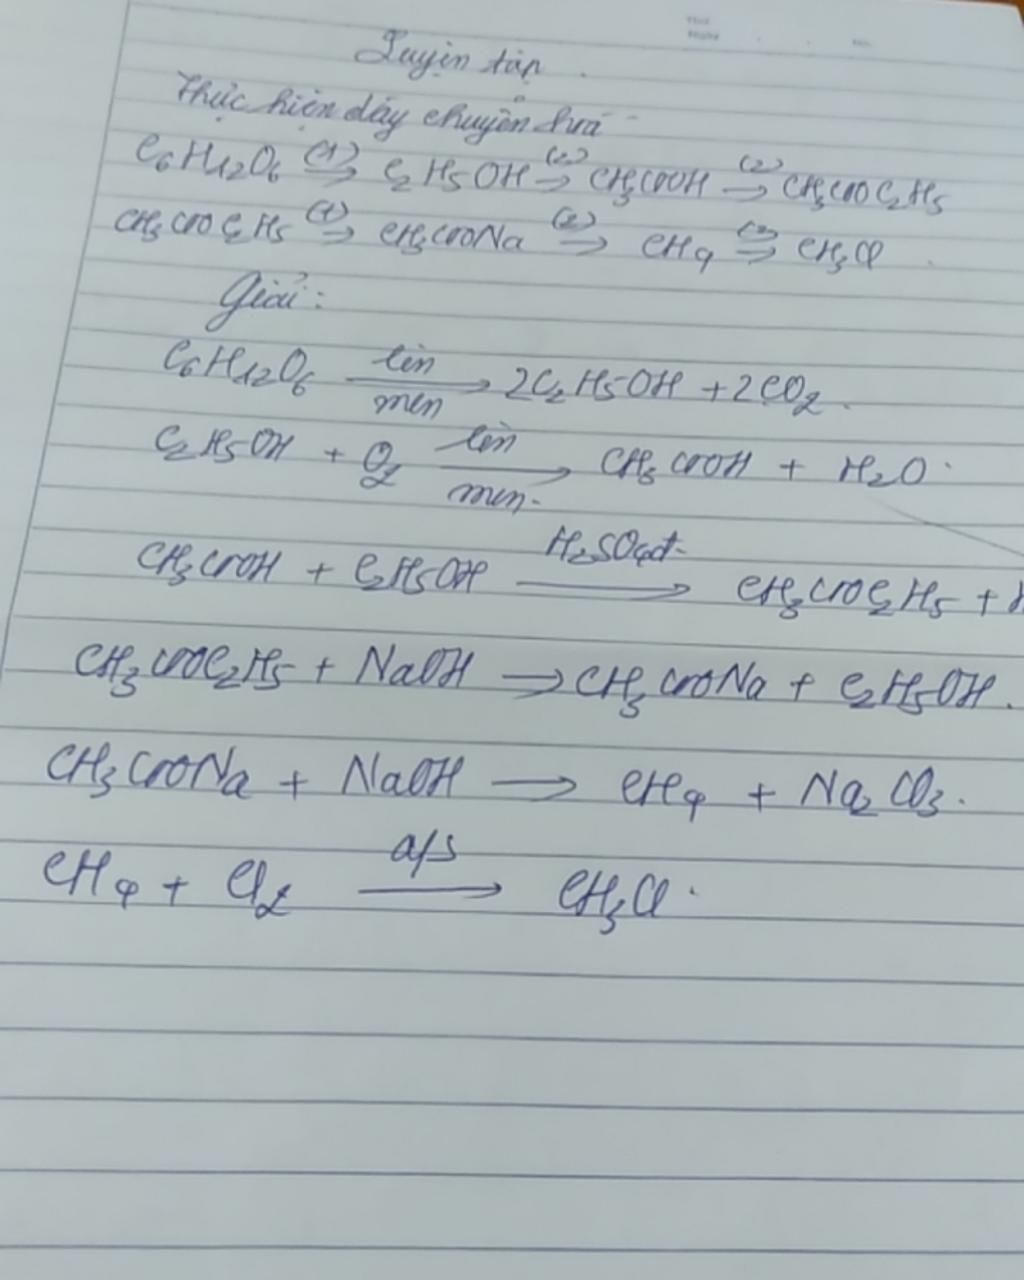 Luyện tập
Thực hiện dãy chuyển hoá
C6H12O6 (1)→ C2H5OH (2)→ CH3COOH (2)→ CH3COOC2H5
CH3COOC2H5 (1)→ CH3COONa (2)→ CH4 (3)→ CH3Cl
Giải:
C6H12O6 lên men→ 2C2H5OH + 2CO2.
C2H5OH + O2 lên men→ CH3COOH + H2O.
CH3COOH + C2H5OH H2SO4đ→ CH3COOC2H5 +
CH3COOC2H5 + NaOH → CH3COONa + C2H5OH.
CH3COONa + NaOH → CH4 + Na2CO3.
CH4 + Cl2 a/s→ CH3Cl.